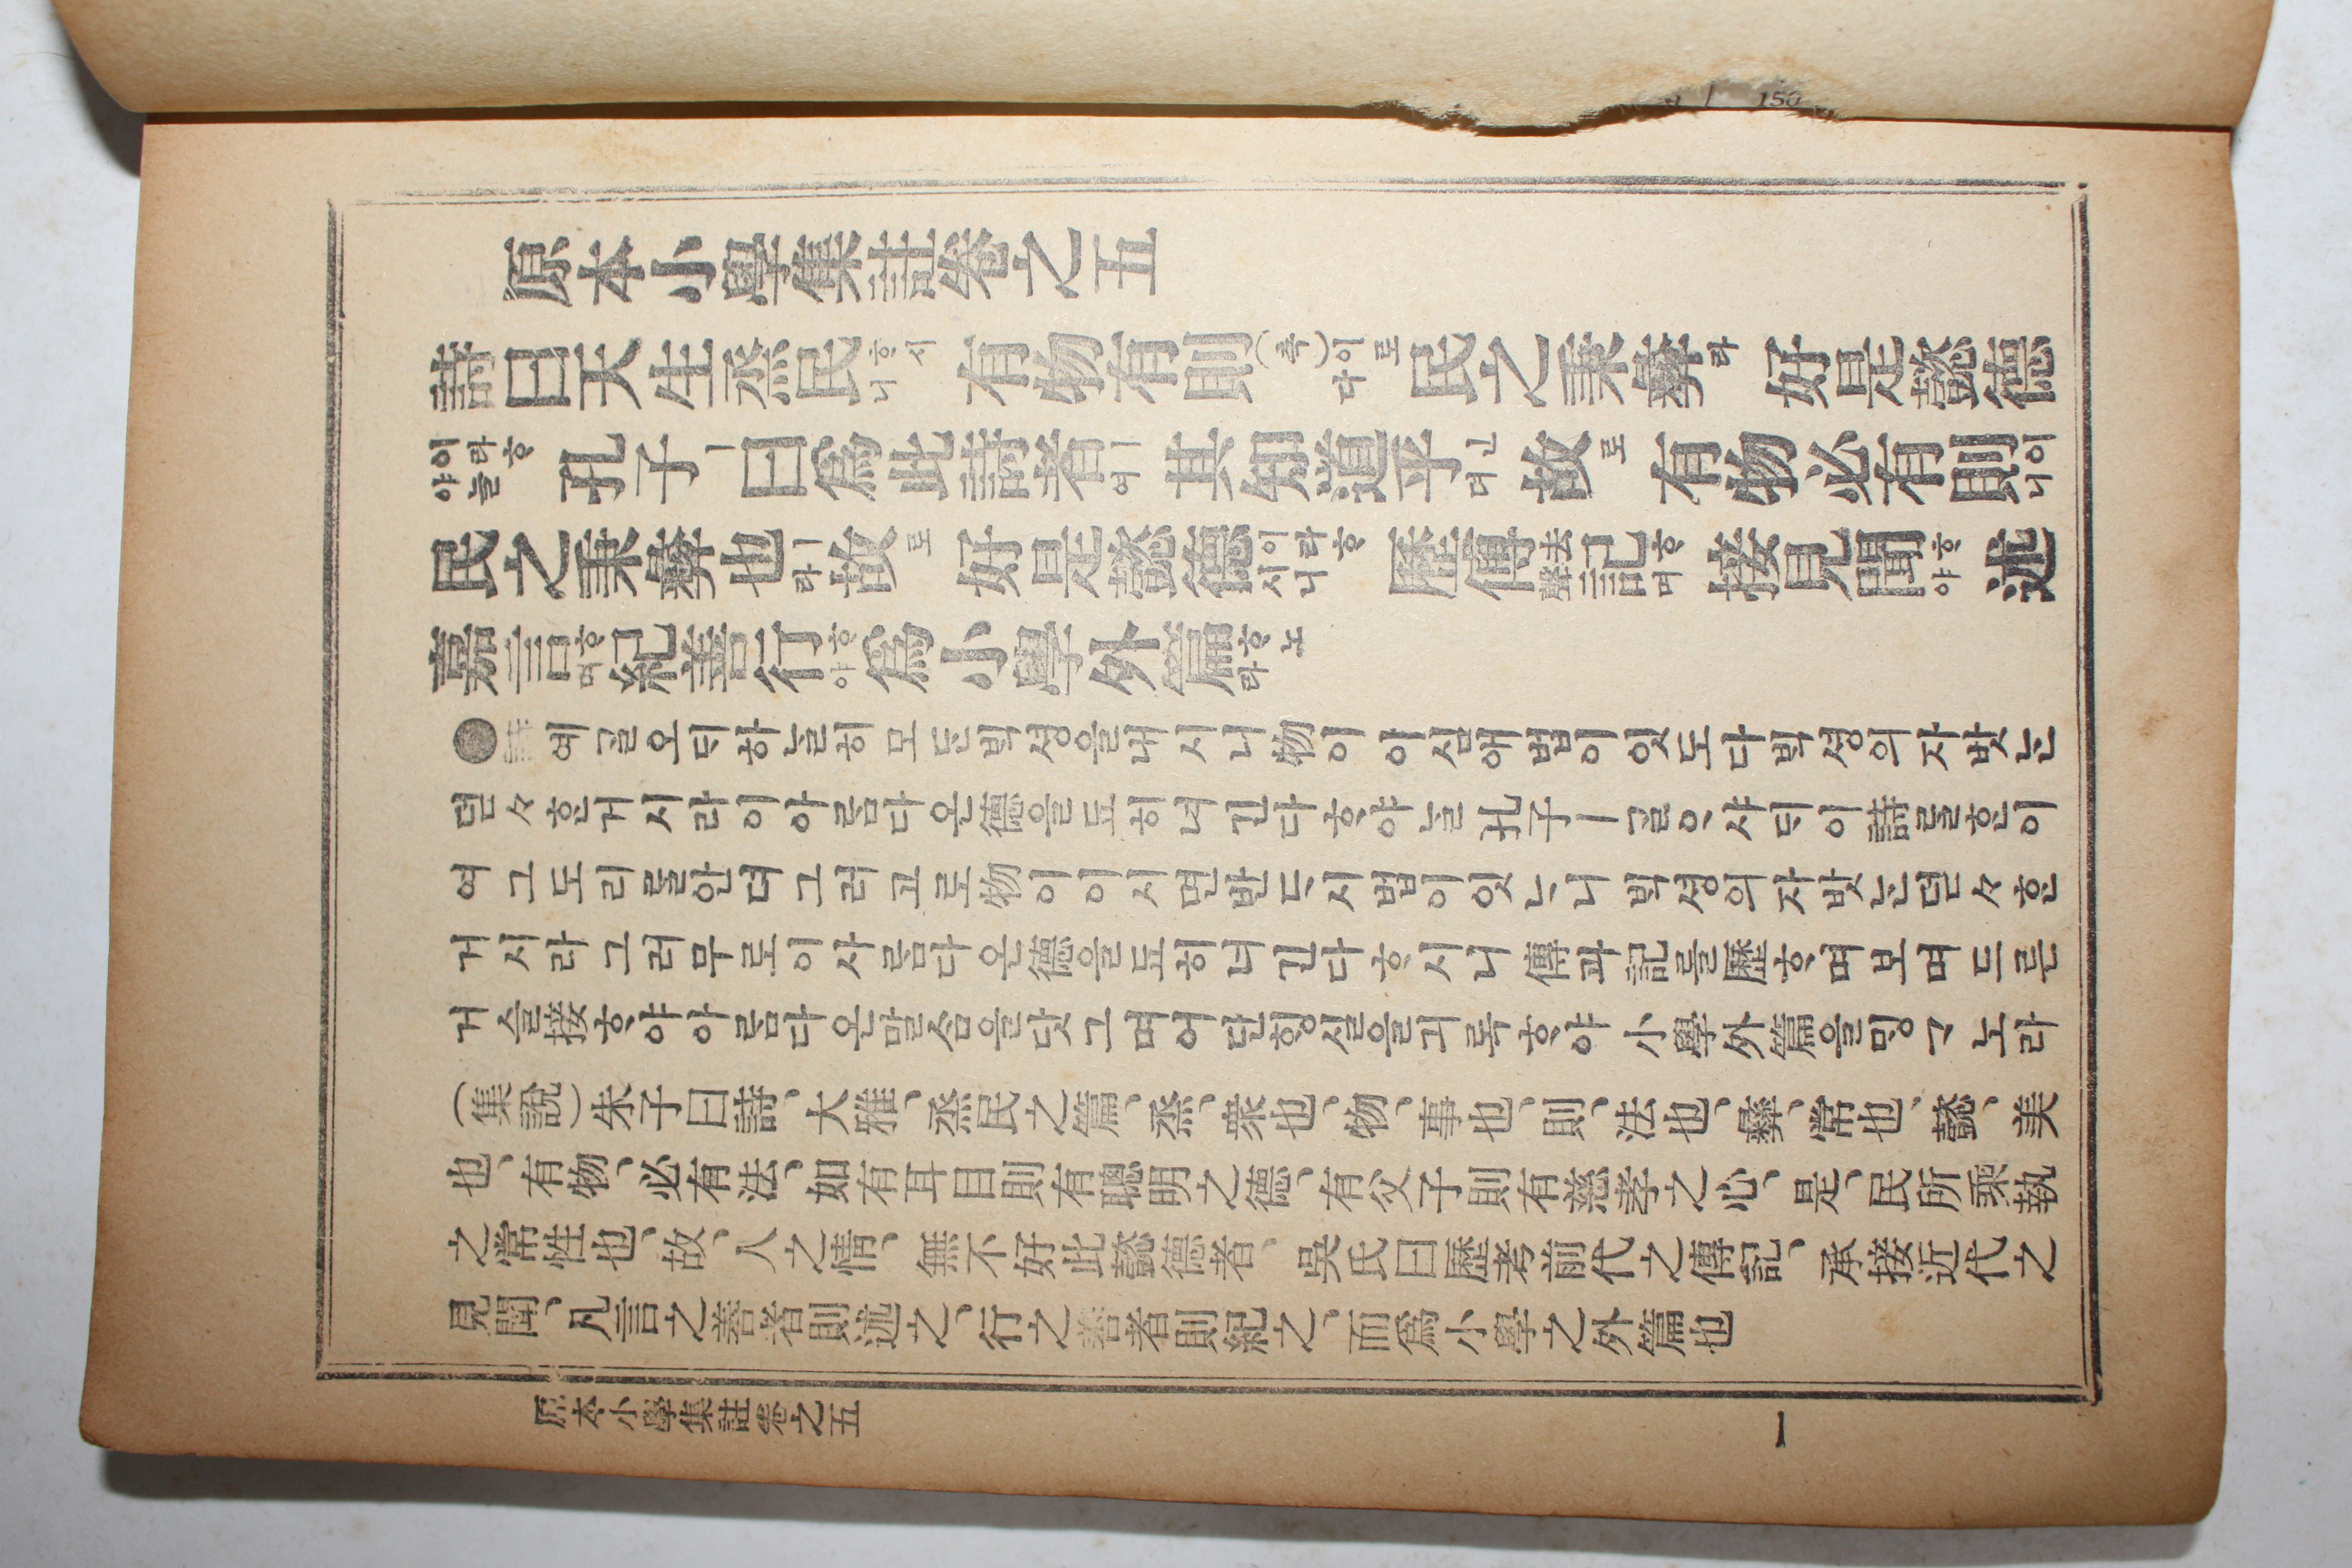 原本小學集註卷之五
詩曰天生烝民ᄒᆞ시니 有物有則(측)이로다 民之秉彝라 好是懿德
이라ᄒᆞ야늘 孔子ㅣ曰爲此詩者ㅣ여 其知道乎ㄴ뎌 故로 有物必有則이니
民之秉彝也ㅣ라 故로 好是懿德이라ᄒᆞ시니 歷傳去聲記ᄒᆞ며 接見聞ᄒᆞ야 述
嘉言ᄒᆞ며 紀善行ᄒᆞ야 爲小學外篇ᄒᆞ노라
●詩예ᄀᆞᆯ오ᄃᆡ하ᄂᆞᆯ히모ᄃᆞᆫᄇᆡᆨ셩을내시니物이이심애법이잇도다ᄇᆡᆨ셩의자밧ᄂᆞᆫ
덛々ᄒᆞᆫ거시라이아ᄅᆞᆷ다온德을됴히녀긴다ᄒᆞ야ᄂᆞᆯ孔子ㅣᄀᆞᆯᄋᆞ샤ᄃᆡ이詩ᄅᆞᆯᄒᆞᆫ이
여그도리ᄅᆞᆯ안뎌그러고로物이이시면반ᄃᆞ시법이잇ᄂᆞ니ᄇᆡᆨ셩의자밧ᄂᆞᆫ덛々ᄒᆞᆫ
거시라그러무로이사ᄅᆞᆷ다온德을됴히녀긴다ᄒᆞ시니傳과記ᄅᆞᆯ歷ᄒᆞ며보며드른
거슬接ᄒᆞ야아ᄅᆞᆷ다온말ᄉᆞᆷ을닷그며어딘ᄒᆡᆼ실을긔록ᄒᆞ야小學外篇을ᄆᆡᆼᄀᆞ노라
(集說)朱子曰詩、大雅、烝民之篇、烝、衆也、物、事也、則、法也、彝、常也、懿、美
也、有物、必有法、如有耳目則有聰明之德、有父子則有慈孝之心、是、民所秉執
之常性也、故、人之情、無不好此懿德者、吳氏曰歷考前代之傳記、承接近代之
見聞、凡言之善者則述之、行之善者則紀之、而爲小學之外篇也
原本小學集註卷之五
一
150